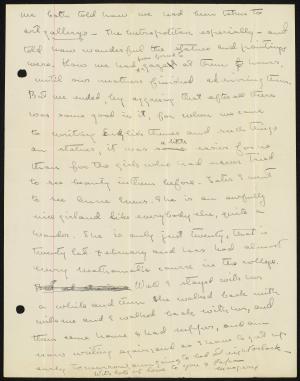 we both told how we had been taken to
art gallerys - the metropolitan especially - and
told how wonderful the statues and paintings
were. How we had gazed at them for hours,
until our mothers finished admiring them.
But we ended, by agreeing that after all there
was some good in it, for when we came
to writing English themes and such things
on statues, it was a little easier for us
than for the girls who had never tried
to see beauty in them before. Later I went
to see . She is an awfully
nice girl and like everybody else, quite a
wonder. She is only just twenty, that is
twenty last February and has had almost
every mathematic course in the college.
Well I stayed with her
a while and then she walked back with
me and I walked back with her, and
then came home & had supper, and am
now writing again and as I have to get up
early tomorrow am going to bed right back -
With lots of love to you & Papa